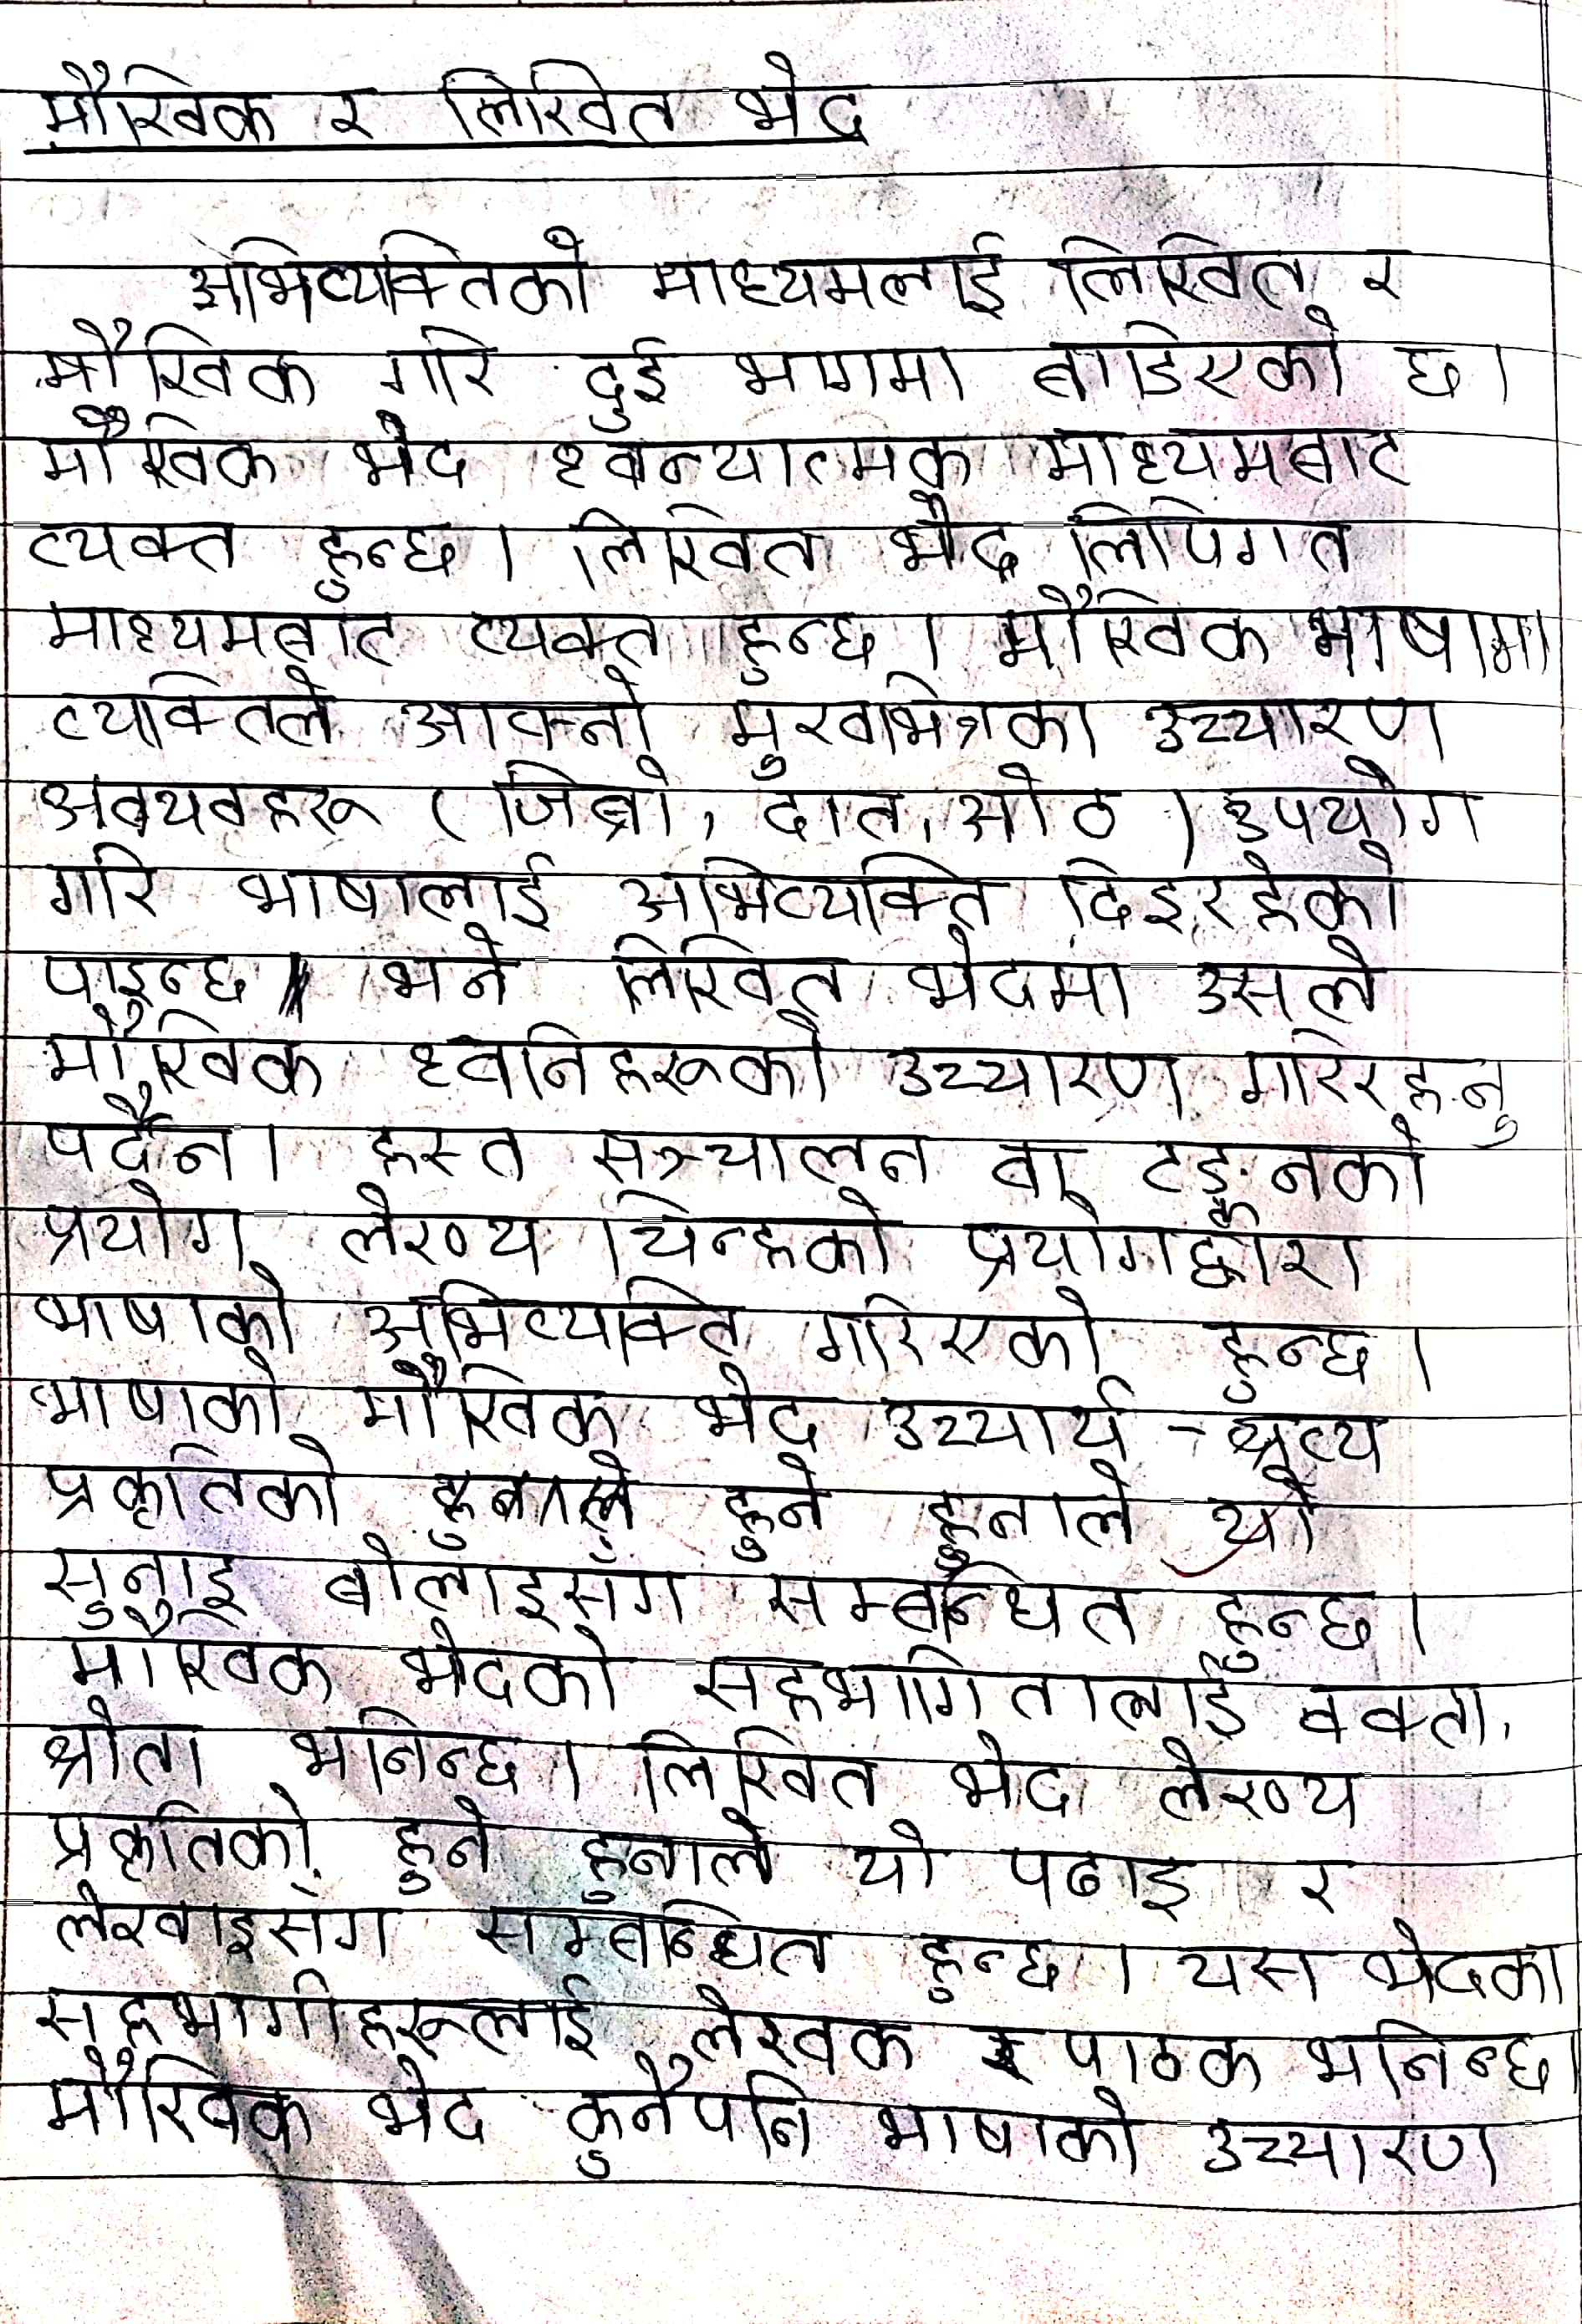 मौखिक र लिखित भेद
अभिव्यक्तिको माध्यमलाई लिखित र
मौखिक गरि दुई भागमा बाडिएको छ।
मौखिक भेद ध्वन्यात्मक माध्यमबाट
व्यक्त हुन्छ। लिखित भेद लिपिगत
माध्यमबाट व्यक्त हुन्छ। मौखिक भाषामा
व्यक्तिले आफ्नो मुखभित्रका उच्चारण
अवयवहरू (जिब्रो, दाँत, ओठ) उपयोग
गरि भाषालाई अभिव्यक्ति दिइरहेको
पाइन्छ भने लिखित भेदमा उसले
मौखिक ध्वनिहरूको उच्चारण गरिरहनु
पर्दैन। हस्त सञ्चालन वा टङ्नको
प्रयोग लेख्य चिन्हको प्रयोगद्वारा
भाषाको अभिव्यक्ति गरिएको हुन्छ।
भाषाको मौखिक भेद उच्चार्य - श्रव्य
प्रकृतिको हुने हुनाले यो
सुनाइ बोलाँइसँग सम्बन्धित हुन्छ।
मौखिक भेदको सहभागितालाई वक्ता,
श्रोता भनिन्छ। लिखित भेद लेख्य
प्रकृतिको हुने हुनाले यो पढाइ र
लेखाइसँग सम्बन्धित हुन्छ। यस भेदका
सहभागीहरूलाई लेखक र पाठक भनिन्छ।
मौखिक भेद कुनैपनि भाषाको उच्चारण